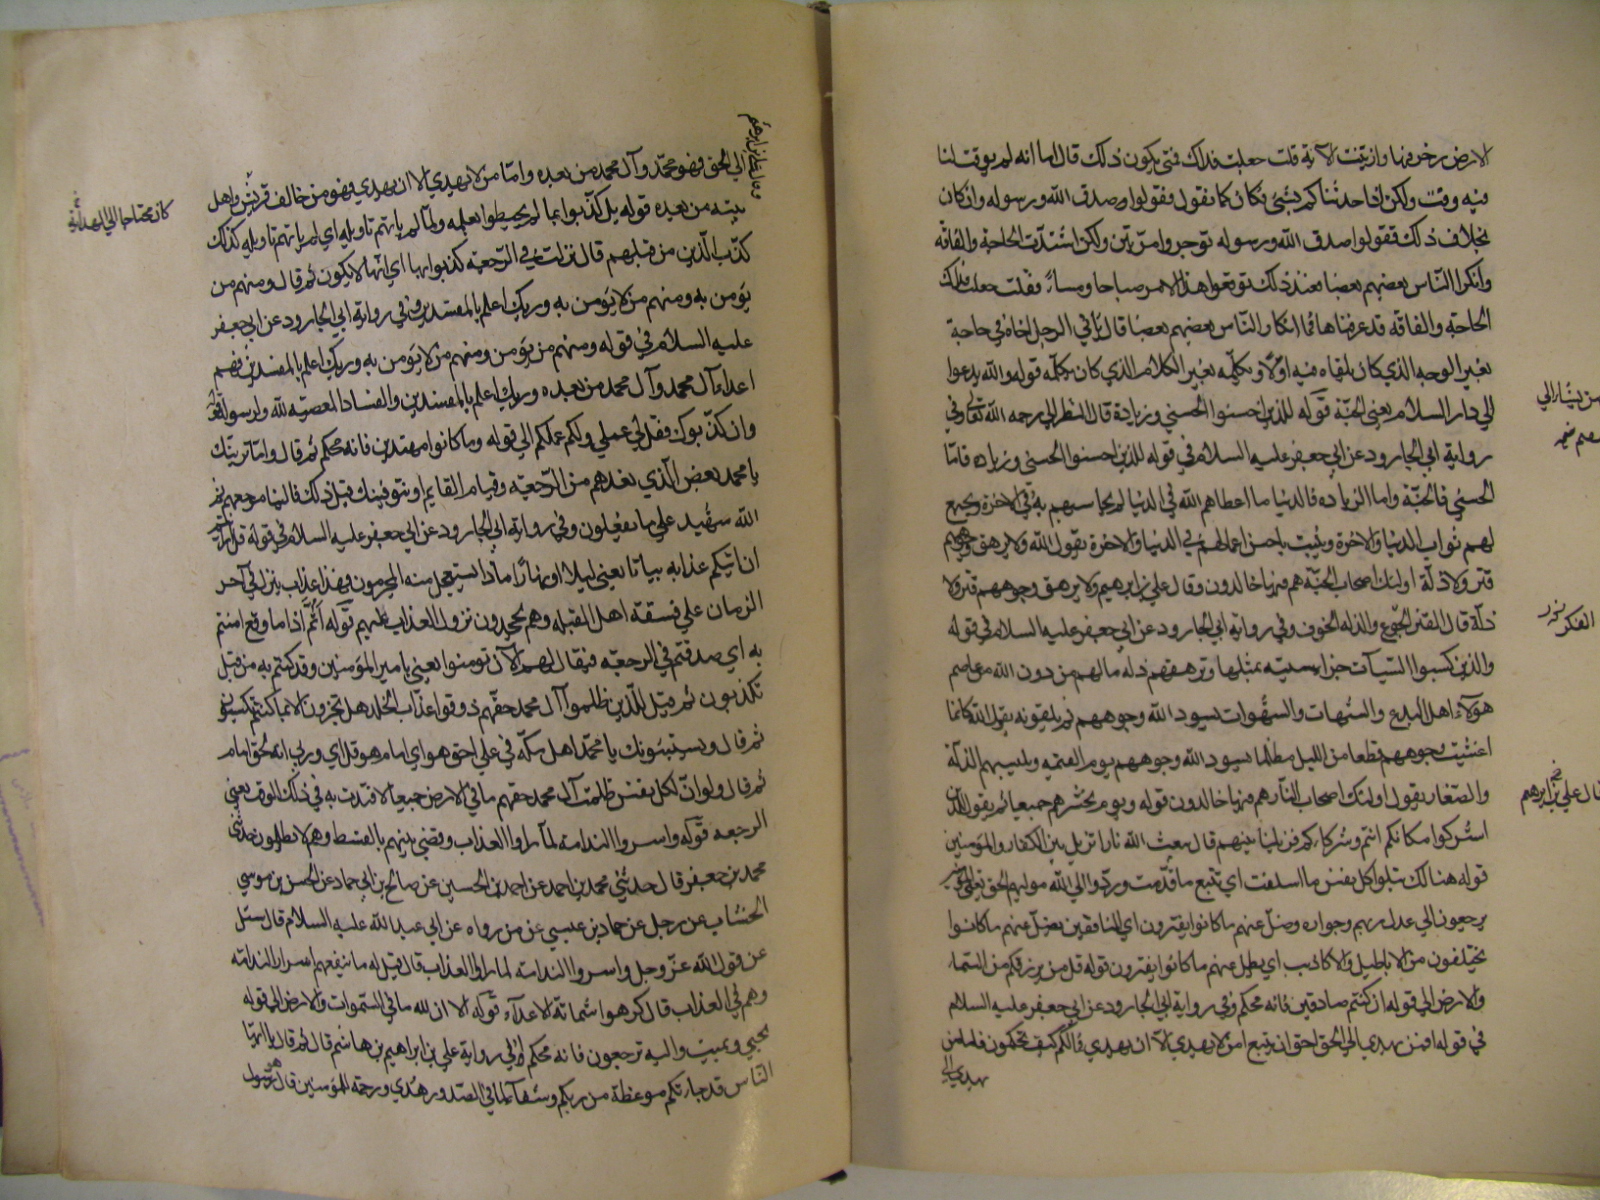 الارض زخرفها وازينت الآية قلت جعلت فداك فمتى يكون ذلك قال اما انه لم يوقت لنا
فيه وقت ولكن اذا حدثناكم بشيء فكان كما نقول فقولوا صدق الله ورسوله وان كان
بخلاف ذلك فقولوا صدق الله ورسوله توجروا مرتين ولكن اشتدت الحاجة والفاقه
وانكر الناس بعضهم بعضا فعند ذلك توقعوا هذا الامر صباحا ومساءً فقلت جعلت فداك
الحاجة والفاقه قد عرفناها فما انكار الناس بعضهم بعضا قال ياتي الرجل اخاه في حاجة
بغير الوجه الذي كان يلقاه فيه اولا ويكلمه بغير الكلام الذي كان يكلمه قوله والله يدعوا
الي دار السلام يعني الجنة قوله للذين احسنوا الحسني وزيادة قال النظر الي رحمه الله تعالى وفي
رواية ابي الجارود عن ابي جعفر عليه السلام في قوله للذين احسنوا الحسني وزياده فاما
الحسني فالجنة واما الزياده فالدنيا ما اعطاهم الله في الدنيا لم يحاسبهم به في الاخرة ويجمع
لهم ثواب الدنيا والاخرة ويثيب باحسن اعمالهم في الدنيا والاخرة يقول الله ولا يرهق وجوههم
قتر ولا ذلة اولئك اصحاب الجنة هم فيها خالدون وقال علي بن ابرهيم ولا يرهق وجوههم قتر ولا
ذلة قال القتر الجوع والذله الخوف وفي رواية ابي الجارود عن ابي جعفر عليه السلام في قوله
والذين كسبوا السيآت جزاء سيئه بمثلها وترهقهم ذله مالهم من دون الله من عاصم
هولآء اهل البدع والشبهات والشهوات يسود الله وجوههم ثم يلقونه يقول الله كانما
اغشيت وجوههم قطعا من الليل مظلما يسود الله وجوههم يوم القيمه ويلبسهم الذلة
والصغار يقول اولئك اصحاب النار هم فيها خالدون قوله ويوم نحشرهم جميعا ثم نقول للذين
اشركوا مكانكم انتم وشركاءكم فزيلنا بينهم قال يبعث الله نارا تزيل بين الكفار والمومنين
قوله هنالك تبلوا كل نفس ما اسلفت اي تتبع ما قدمت وردوا الي الله موليهم الحق
يرجعون الي عدل ربهم وجواره وضل عنهم ما كانوا يفترون اي المنافقين بضل عنهم ما كانوا
يختلفون من الاباطيل والاكاذيب اي يبطل عنهم ما كانوا يفترون قوله قل من يرزقكم من السماء
والارض الي قوله ان كنتم صادقين فانه محكم وفي رواية ابي الجارود عن ابي جعفر عليه السلام
في قوله افمن يهدي الي الحق احق ان يتبع امن لا يهدي الا ان يهدي فمالكم كيف تحكمون فاما من
يهدي الي
الفكر
قال علي بن ابرهيم
الي الحق فهو محمد وآل محمد من بعده واما من لا يهدي الا ان يهدي فهو من خالف قريش واهل
بيته من بعده قوله بل كذبوا بما لم يحيطوا بعلمه ولما لم ياتهم تاويله اي لم ياتهم تاويله كذلك
كذب الذين من قبلهم قال نزلت في الرجعيه كذبوا بها اي انها لا يكون ثم قال ومنهم من
يومن به ومنهم من لا يومن به وربك اعلم بالمفسدين وفي رواية ابي الجارود عن ابي جعفر
عليه السلام في قوله ومنهم من يومن ومنهم من لا يومن به وربك اعلم بالمفسدين فهم
اعداء آل محمد وآل محمد من بعده وربك اعلم بالمفسدين والفساد المعصيه لله ولرسوله
وان كذبوك فقل لي عملي ولكم عملكم الي قوله وما كانوا مهتدين فانه محكم ثم قال واما نرينك
يا محمد بعض الذي نعدهم من الرجعيه وقيام القايم او نتوفينك قبل ذلك فالينا مرجعهم ثم
الله شهيد علي ما يفعلون وفي رواية ابي الجارود عن ابي جعفر عليه السلام في قوله قل ارايتم
ان اتيكم عذابه بياتا يعني ليلا او نهارا ماذا يستعجل منه المجرمون فهذا عذاب ينزل في آخر
الزمان علي فسقة اهل القبله وهم يجحدون نزول العذاب عليهم قوله اثم اذا ما وقع امنتم
به اي صدقتم في الرجعيه فيقال لهم الآن تومنوا يعني بامير المومنين وقد كنتم به من قبل
تكذبون ثم قيل للذين ظلموا آل محمد حقهم ذوقوا عذاب الخلد هل تجزون الا بما كنتم تكسبون
ثم قال ويستنبئونك يا محمد اهل مكه في علي احق هو اي امام هو قل اي وربي انه لحق امام
ثم قال ولو ان لكل نفس ظلمت آل محمد حقهم ما في الارض جميعا لافتدت به في ذلك الوقت يعني
الرجعه قوله واسروا الندامة لما راوا العذاب وقضي بينهم بالقسط وهم لا يظلمون حدثني
محمد بن جعفر قال حدثني محمد بن احمد عن احمد بن الحسين عن صالح بن ابي حماد عن الحسن بن موسي
الخشاب عن رجل عن حماد بن عيسي عن من رواه عن ابي عبد الله عليه السلام قال سئل
عن قول الله عز وجل واسروا الندامة لما راوا العذاب قال قيل له ما ينفعهم اسرار الندامة
وهم في العذاب قال كرهوا شماتة الاعداء قوله الا ان لله ما في السموات والارض الي قوله
يحيي ويميت واليه ترجعون فانه محكم الي رواية علي بن ابراهيم بن هاشم قال ثم قال يا ايها
الناس قد جاءتكم موعظة من ربكم وشفاء لما في الصدور وهدي ورحمة للمومنين قال رسول
كان محتاجا الي الهداية